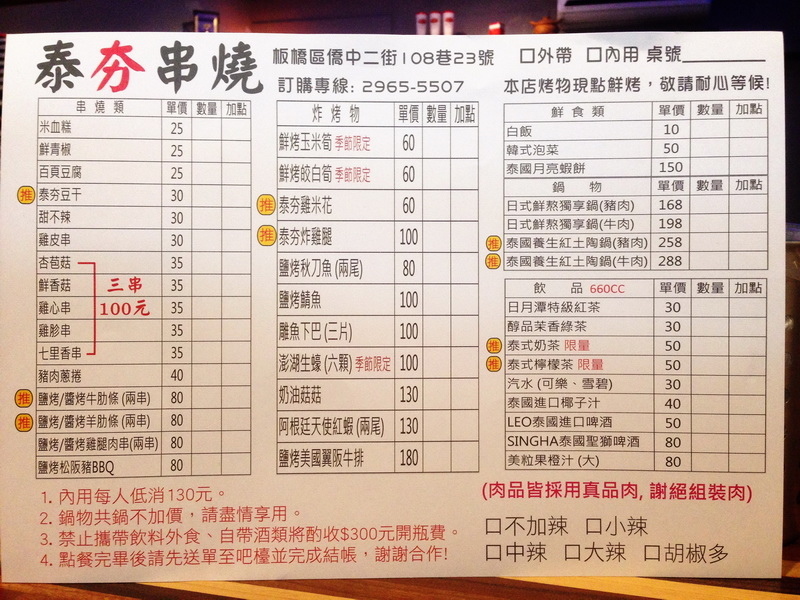 泰夯串燒
板橋區僑中二街108巷23號 口外帶 口內用 桌號
訂購專線: 2965-5507
本店烤物現點鮮烤，敬請耐心等候!
串燒類 單價 數量 加點
米血糕 25
鮮青椒 25
百頁豆腐 25
推 泰夯豆干 30
甜不辣 30
雞皮串 30
杏苞菇 35
鮮香菇 35
雞心串 35
雞胗串 35
七里香串 35
三串
100元
豬肉蔥捲 40
推 鹽烤/醬烤牛肋條 (兩串) 80
推 鹽烤/醬烤羊肋條 (兩串) 80
鹽烤/醬烤雞腿肉串(兩串) 80
鹽烤松阪豬BBQ 80
炸烤物 單價 數量 加點
鮮烤玉米筍 季節限定 60
鮮烤皎白筍 季節限定 60
推 泰夯雞米花 60
推 泰夯炸雞腿 100
鹽烤秋刀魚 (兩尾) 80
鹽烤鯖魚 100
雕魚下巴 (三片) 100
澎湖生蠔 (六顆) 季節限定 100
奶油菇菇 130
阿根廷天使紅蝦 (兩尾) 130
鹽烤美國翼阪牛排 180
鮮食類 單價 數量 加點
白飯 10
韓式泡菜 50
泰國月亮蝦餅 150
鍋物 單價 數量 加點
日式鮮熬獨享鍋(豬肉) 168
日式鮮熬獨享鍋(牛肉) 198
推 泰國養生紅土陶鍋(豬肉) 258
推 泰國養生紅土陶鍋(牛肉) 288
飲品 660CC 單價 數量 加點
日月潭特級紅茶 30
醇品茉香綠茶 30
推 泰式奶茶 限量 50
推 泰式檸檬茶 限量 50
汽水 (可樂、雪碧) 30
泰國進口椰子汁 40
LEO泰國進口啤酒 50
SINGHA泰國聖獅啤酒 80
美粒果橙汁 (大) 80
1. 內用每人低消130元。
2. 鍋物共鍋不加價，請盡情享用。
3. 禁止攜帶飲料外食、自帶酒類將酌收$300元開瓶費。
4. 點餐完畢後請先送單至吧檯並完成結帳，謝謝合作!
(肉品皆採用真品肉, 謝絕組裝肉)
口不加辣 口小辣
口中辣 口大辣 口胡椒多